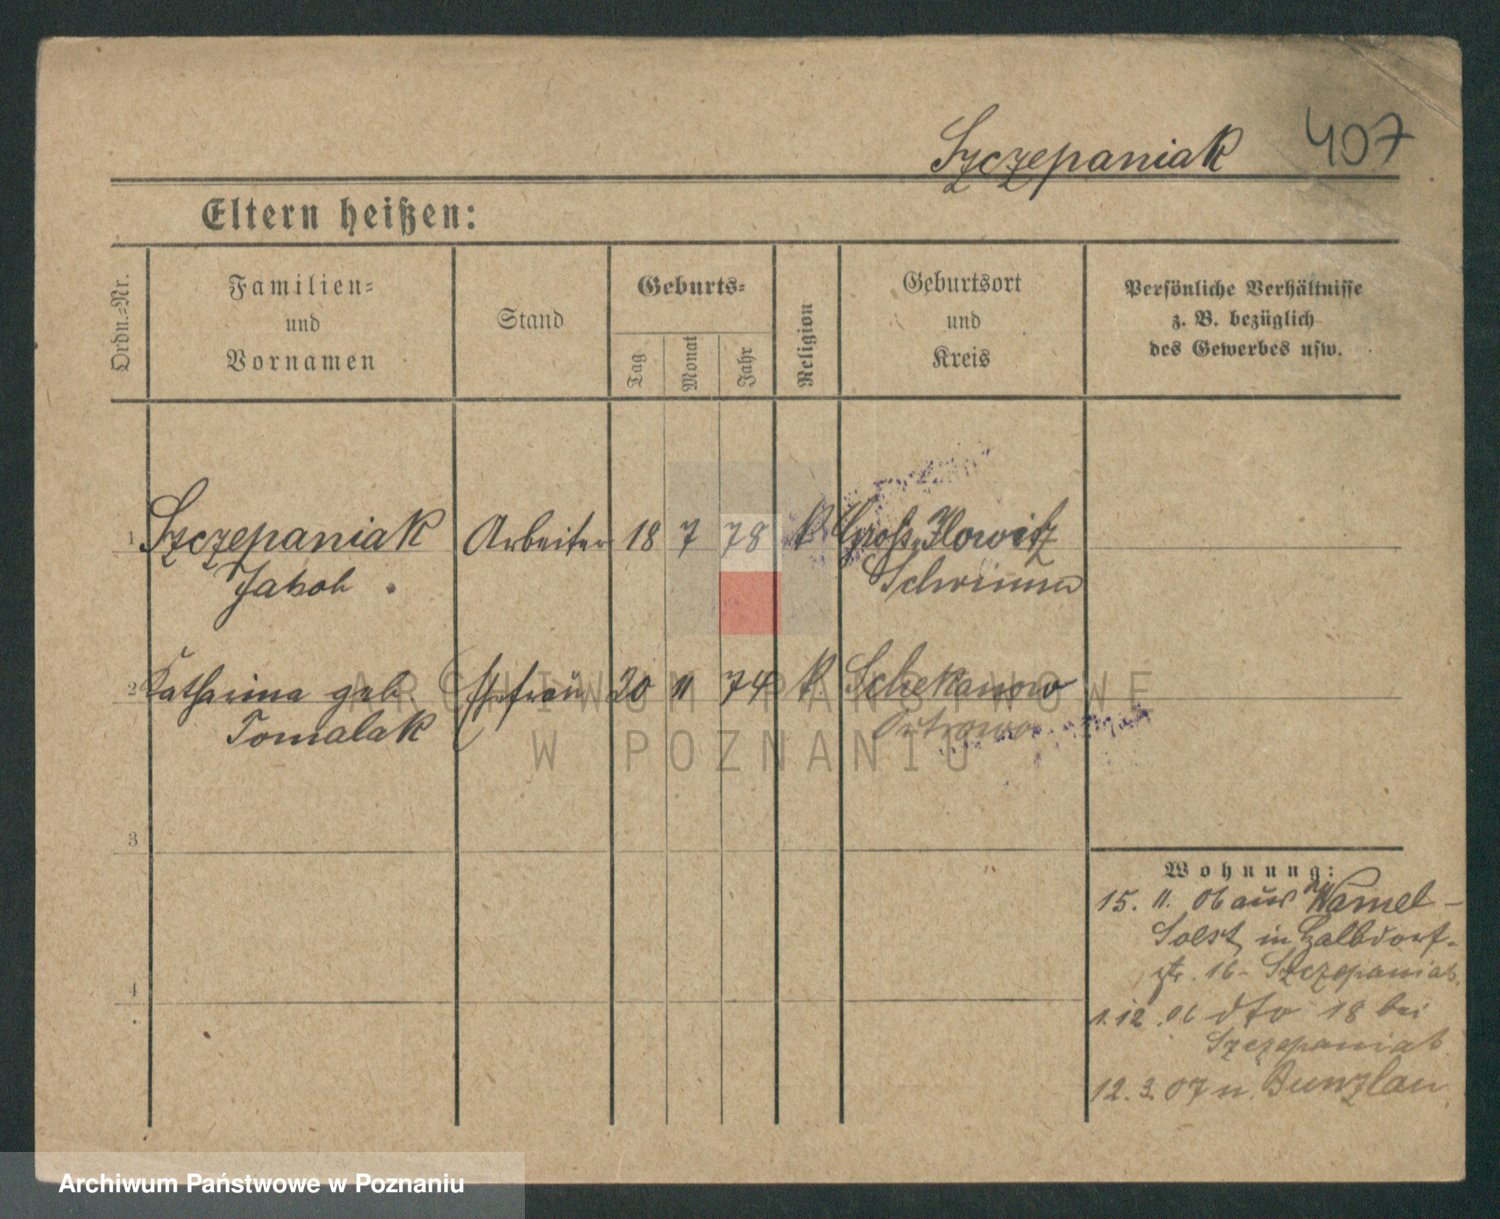 Szczepaniak 407
Eltern heißen:
Ordn.-Nr.
Familien-
und
Vornamen
Stand
Geburts-
Tag
Monat
Jahr
Religion
Geburtsort
und
Kreis
Persönliche Verhältnisse
z. B. bezüglich
des Gewerbes usw.
1 Szczepaniak Arbeiter 18 7 78 k Gross
Jakob Schrimm
2 Katharina geb Ehefrau 20 11 74 k
Tomalak Ostrowo
3
4
Wohnung:
15. 11. 06 aus Wamel-
Soest, in Halbdorf-
str. 16- Szczepaniak
1.12.06 dto 18 bei
Szczepaniak
12.3.07 n. Bunzlau
ARCHIWUM PAŃSTWOWE
W POZNANIU
Archiwum Państwowe w Poznaniu